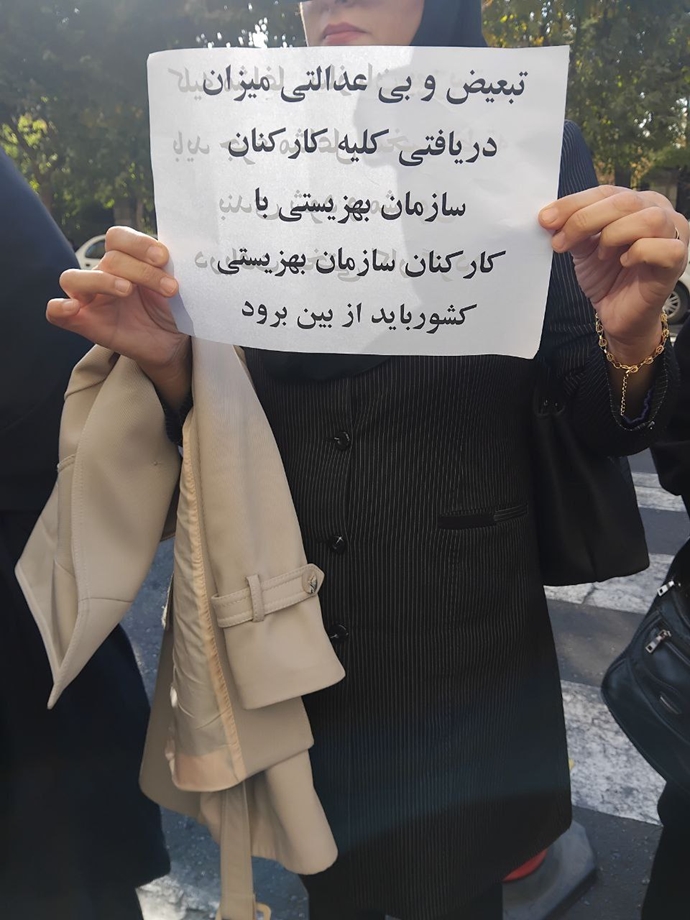 تبعیض و بی عدالتی میزان
دریافتی کلیه کارکنان
سازمان بهزیستی با
کارکنان سازمان بهزیستی
کشورباید از بین برود